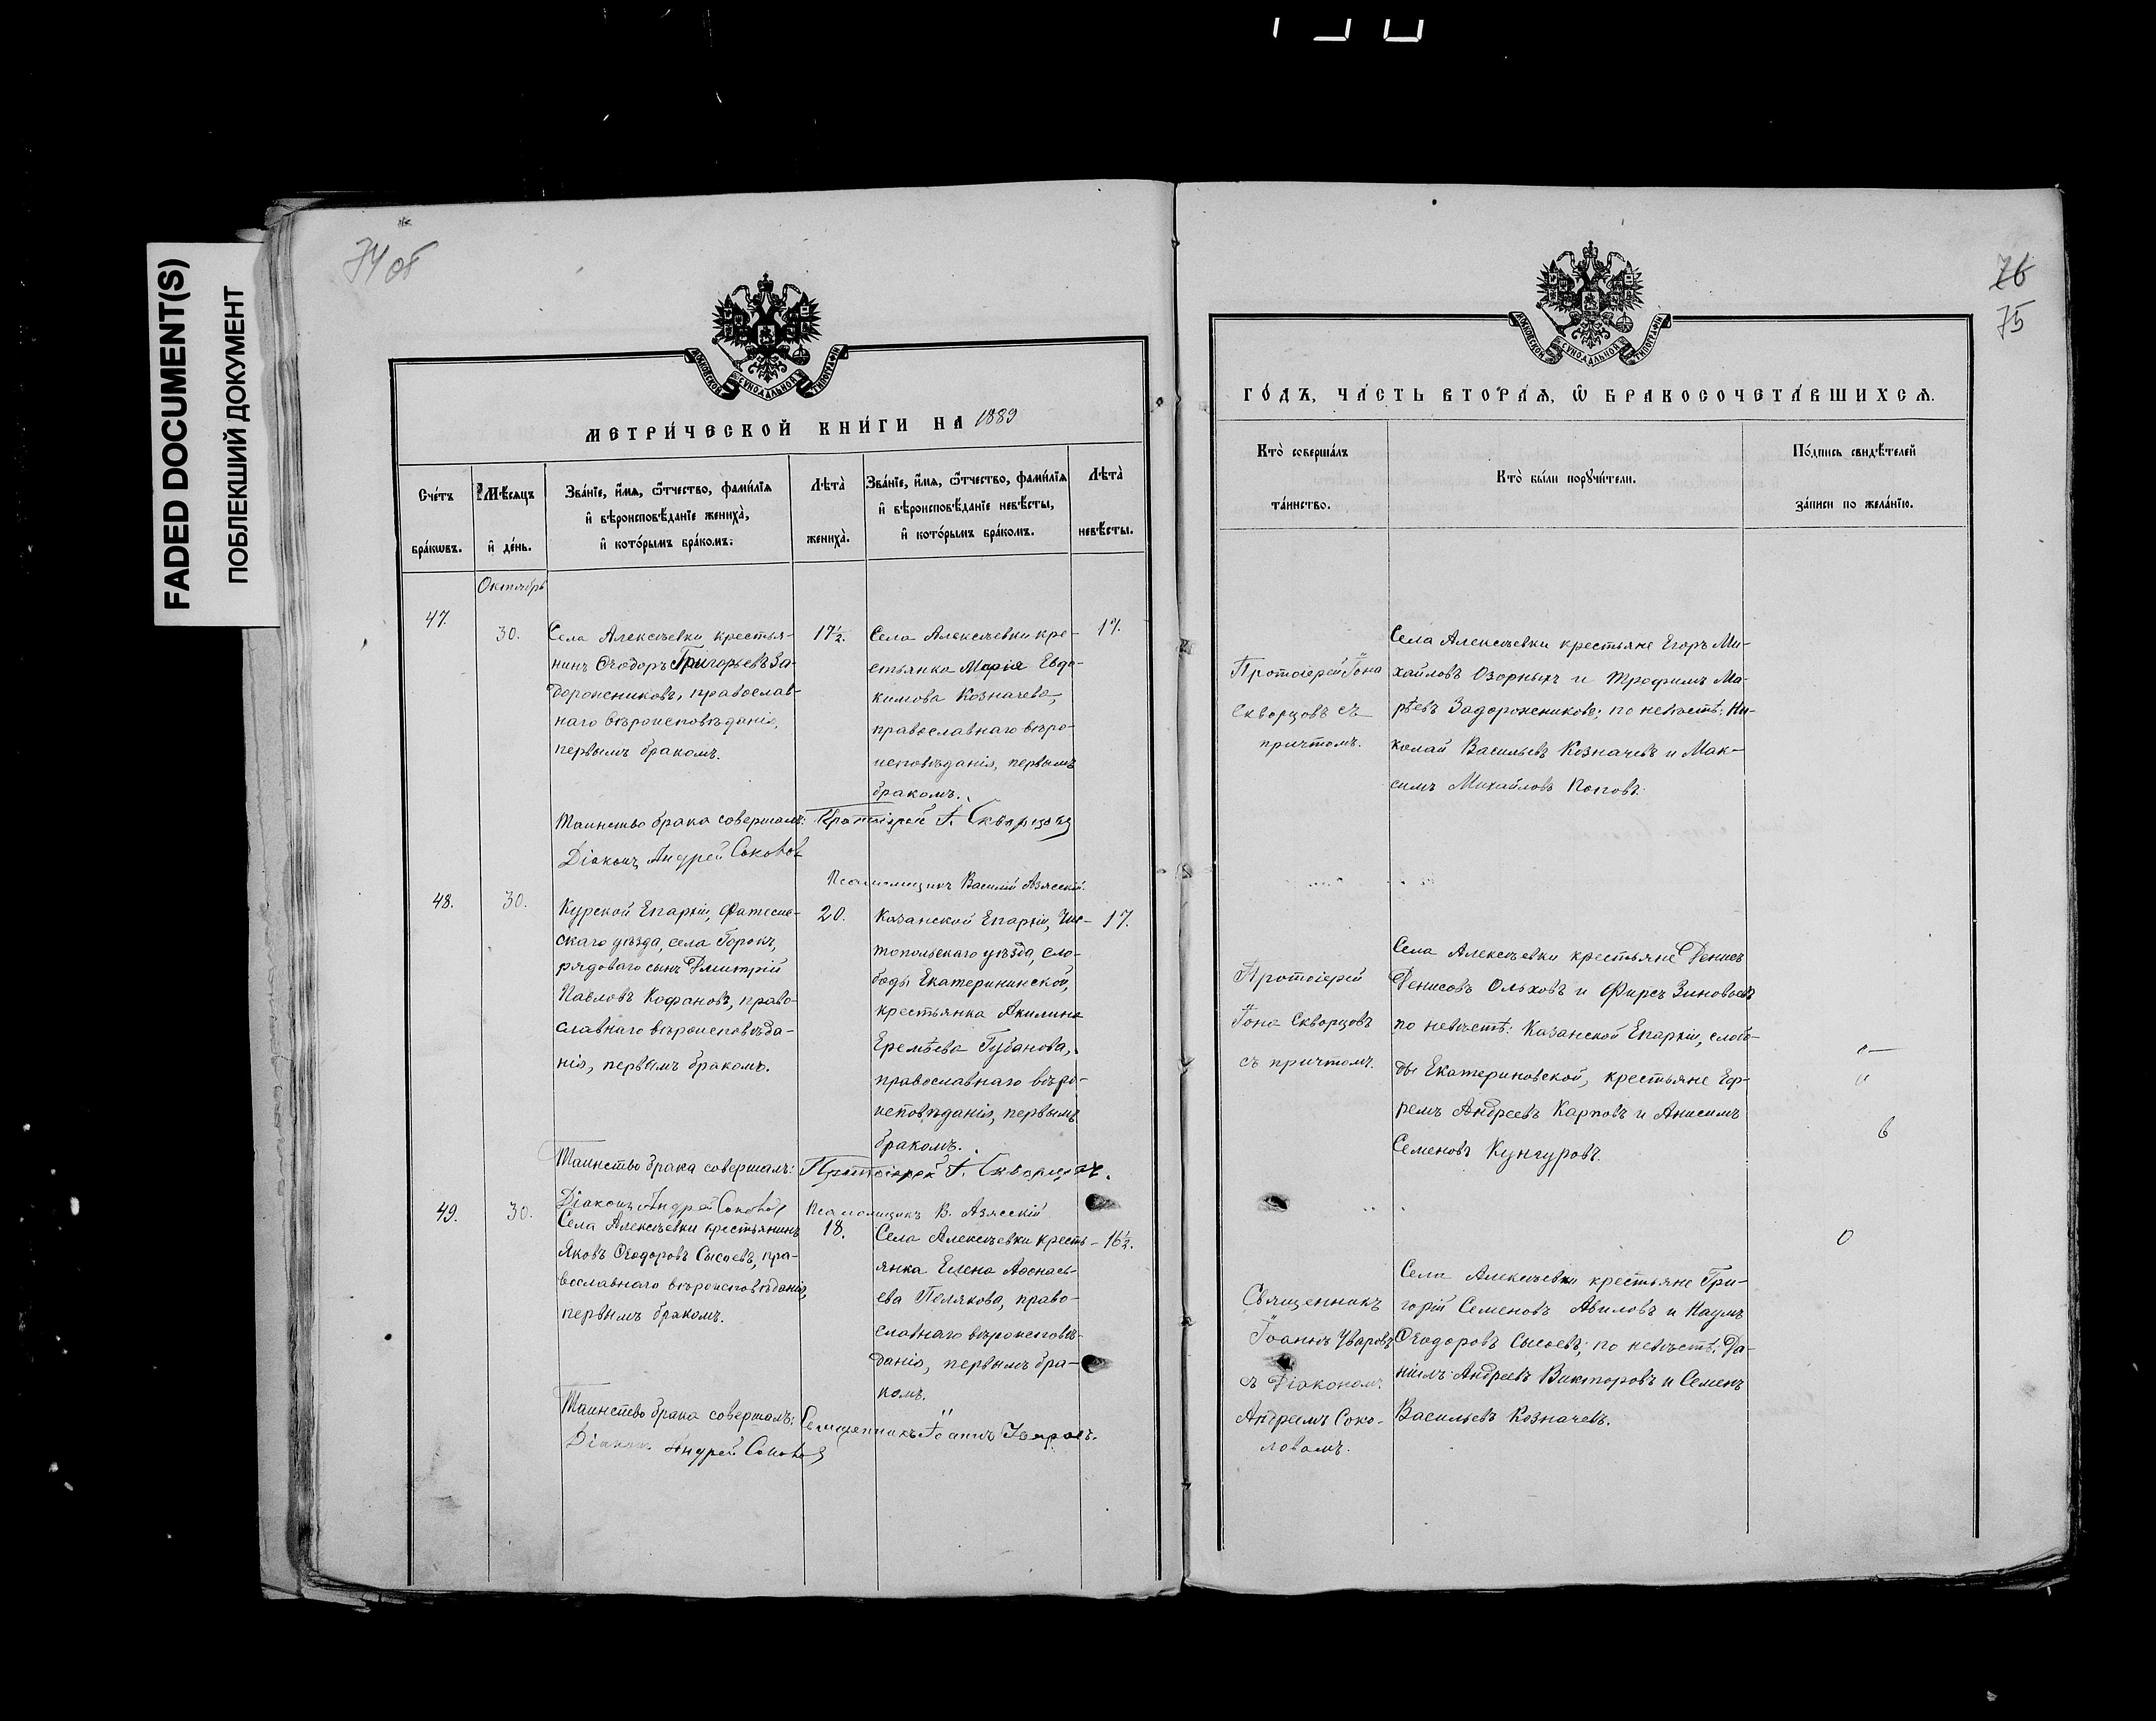 FADED DOCUMENT(S)
ПОБЛЕКШИЙ ДОКУМЕНТ
74 об
МОСКОВСКОЙ СУНОДАЛЬНОЙ ТИПОГРАФІИ
МЕТРИ́ЧЕСКОЙ КНИ́ГИ НА 1889
Сче́тъ бра́кѡвъ.
Мѣ́сяцъ и҆ де́нь.
Зва́нїе, и҆́мѧ, ѻ҆́тчество, фами́лїѧ
и҆ вѣроисповѣ́данїе жениха̀,
и҆ кото́рымъ бра́комъ.
Лѣта̀ жениха̀.
Зва́нїе, и҆́мѧ, ѻ҆́тчество, фами́лїѧ
и҆ вѣроисповѣ́данїе невѣ́сты,
и҆ кото́рымъ бра́комъ.
Лѣта̀ невѣ́сты.
Октябрь
47.
30.
Села Алексѣевки крестья-
нинъ Ѳеодоръ Григорьевъ За-
дорожниковъ, православ-
наго вѣроисповѣданія,
первымъ бракомъ.
17½.
Села Алексѣевки кре-
стьянка Марія Евдо-
кимова Козначева,
православнаго вѣро-
исповѣданія, первымъ
бракомъ.
17.
Таинство брака совершалъ: Протоіерей І. Скворцовъ
Діаконъ Андрей Соколов
Псаломщикъ Василій Азясскій.
48.
30.
Курской Епархіи, Фатеж-
скаго уѣзда, села
рядоваго сынъ Дмитрій
Павловъ Кофановъ, право-
славнаго вѣроисповѣда-
нія, первымъ бракомъ.
20.
Казанской Епархіи, Чис-
топольскаго уѣзда, сло-
боды Екатерининской,
крестьянка Акилина
Еремѣева Губанова,
православнаго вѣро-
исповѣданія, первымъ
бракомъ.
17.
Таинство брака совершалъ: Протоіерей І. Скворцовъ.
Діаконъ Андрей Соколов
Псаломщикъ В. Азясскій
49.
30.
Села Алексѣевки крестьянинъ
Яковъ Ѳеодоровъ Сысоевъ, пра-
вославнаго вѣроисповѣданія,
первымъ бракомъ.
18.
Села Алексѣевки кресть-
янка Елена Аѳонась-
ева Полякова, право-
славнаго вѣроисповѣ-
данія, первымъ бра-
комъ.
16½.
Таинство брака совершалъ: Священникъ Іоаннъ Уваровъ.
Діаконъ Андрей Соколов
76
75
МОСКОВСКОЙ СУНОДАЛЬНОЙ ТИПОГРАФІИ
ГО́ДЪ, ЧА́СТЬ ВТОРА́Ѧ, Ѡ҆ БРАКОСОЧЕТА́ВШИХСѦ.
Кто̀ соверша́лъ
та́инство.
Кто̀ бы́ли порꙋчи́тели.
По́дпись свидѣ́телей
за́писи по жела́нїю.
Протоіерей Іона
Скворцовъ съ
причтомъ.
Села Алексѣевки крестьяне Егоръ Ми-
хайловъ Озорныхъ и Трофимъ Ма-
рѣевъ Задорожниковъ; по невѣстѣ: Ни-
колай Васильевъ Козначевъ и Мак-
симъ Михайловъ Поповъ.
Протоіерей
Іона Скворцовъ
съ причтомъ.
Села Алексѣевки крестьяне Денисъ
Денисовъ Ольховъ и Фирсъ Зиновьевъ
по невѣстѣ: Казанской Епархіи, слобо-
ды Екатериновской, крестьяне Еф-
ремъ Андреевъ Карповъ и Анисимъ
Семеновъ Кунгуровъ.
Священникъ
Іоаннъ Уваровъ
съ Діакономъ
Андреемъ Соко-
ловымъ.
Села Алексѣевки крестьяне Гри-
горій Семеновъ Авиловъ и Наумъ
Ѳеодоровъ Сысоевъ; по невѣстѣ: Да-
ніилъ Андреевъ Викторовъ и Семенъ
Васильевъ Козначевъ.